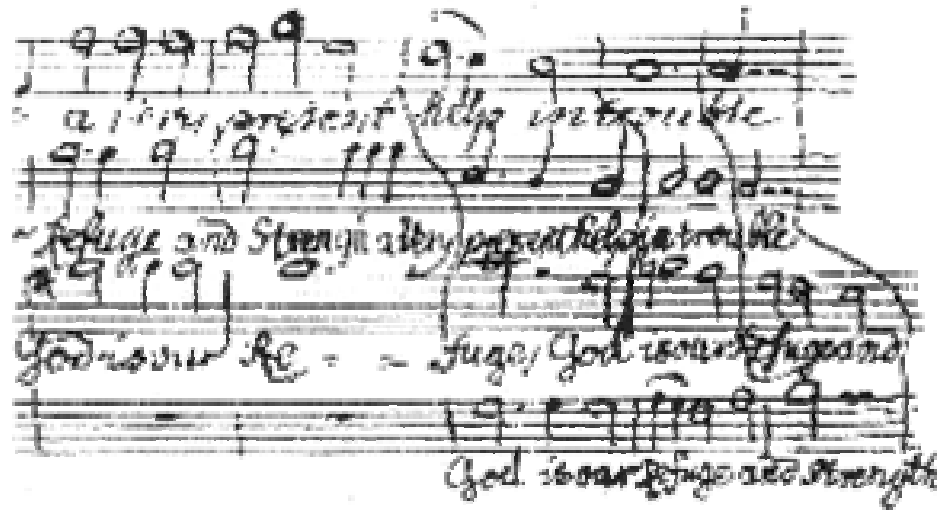 a very present help in trouble
Refuge and Strength a very present help in trouble
God is our Re - - fuge, God is our Refuge and
God is our Refuge and Strength